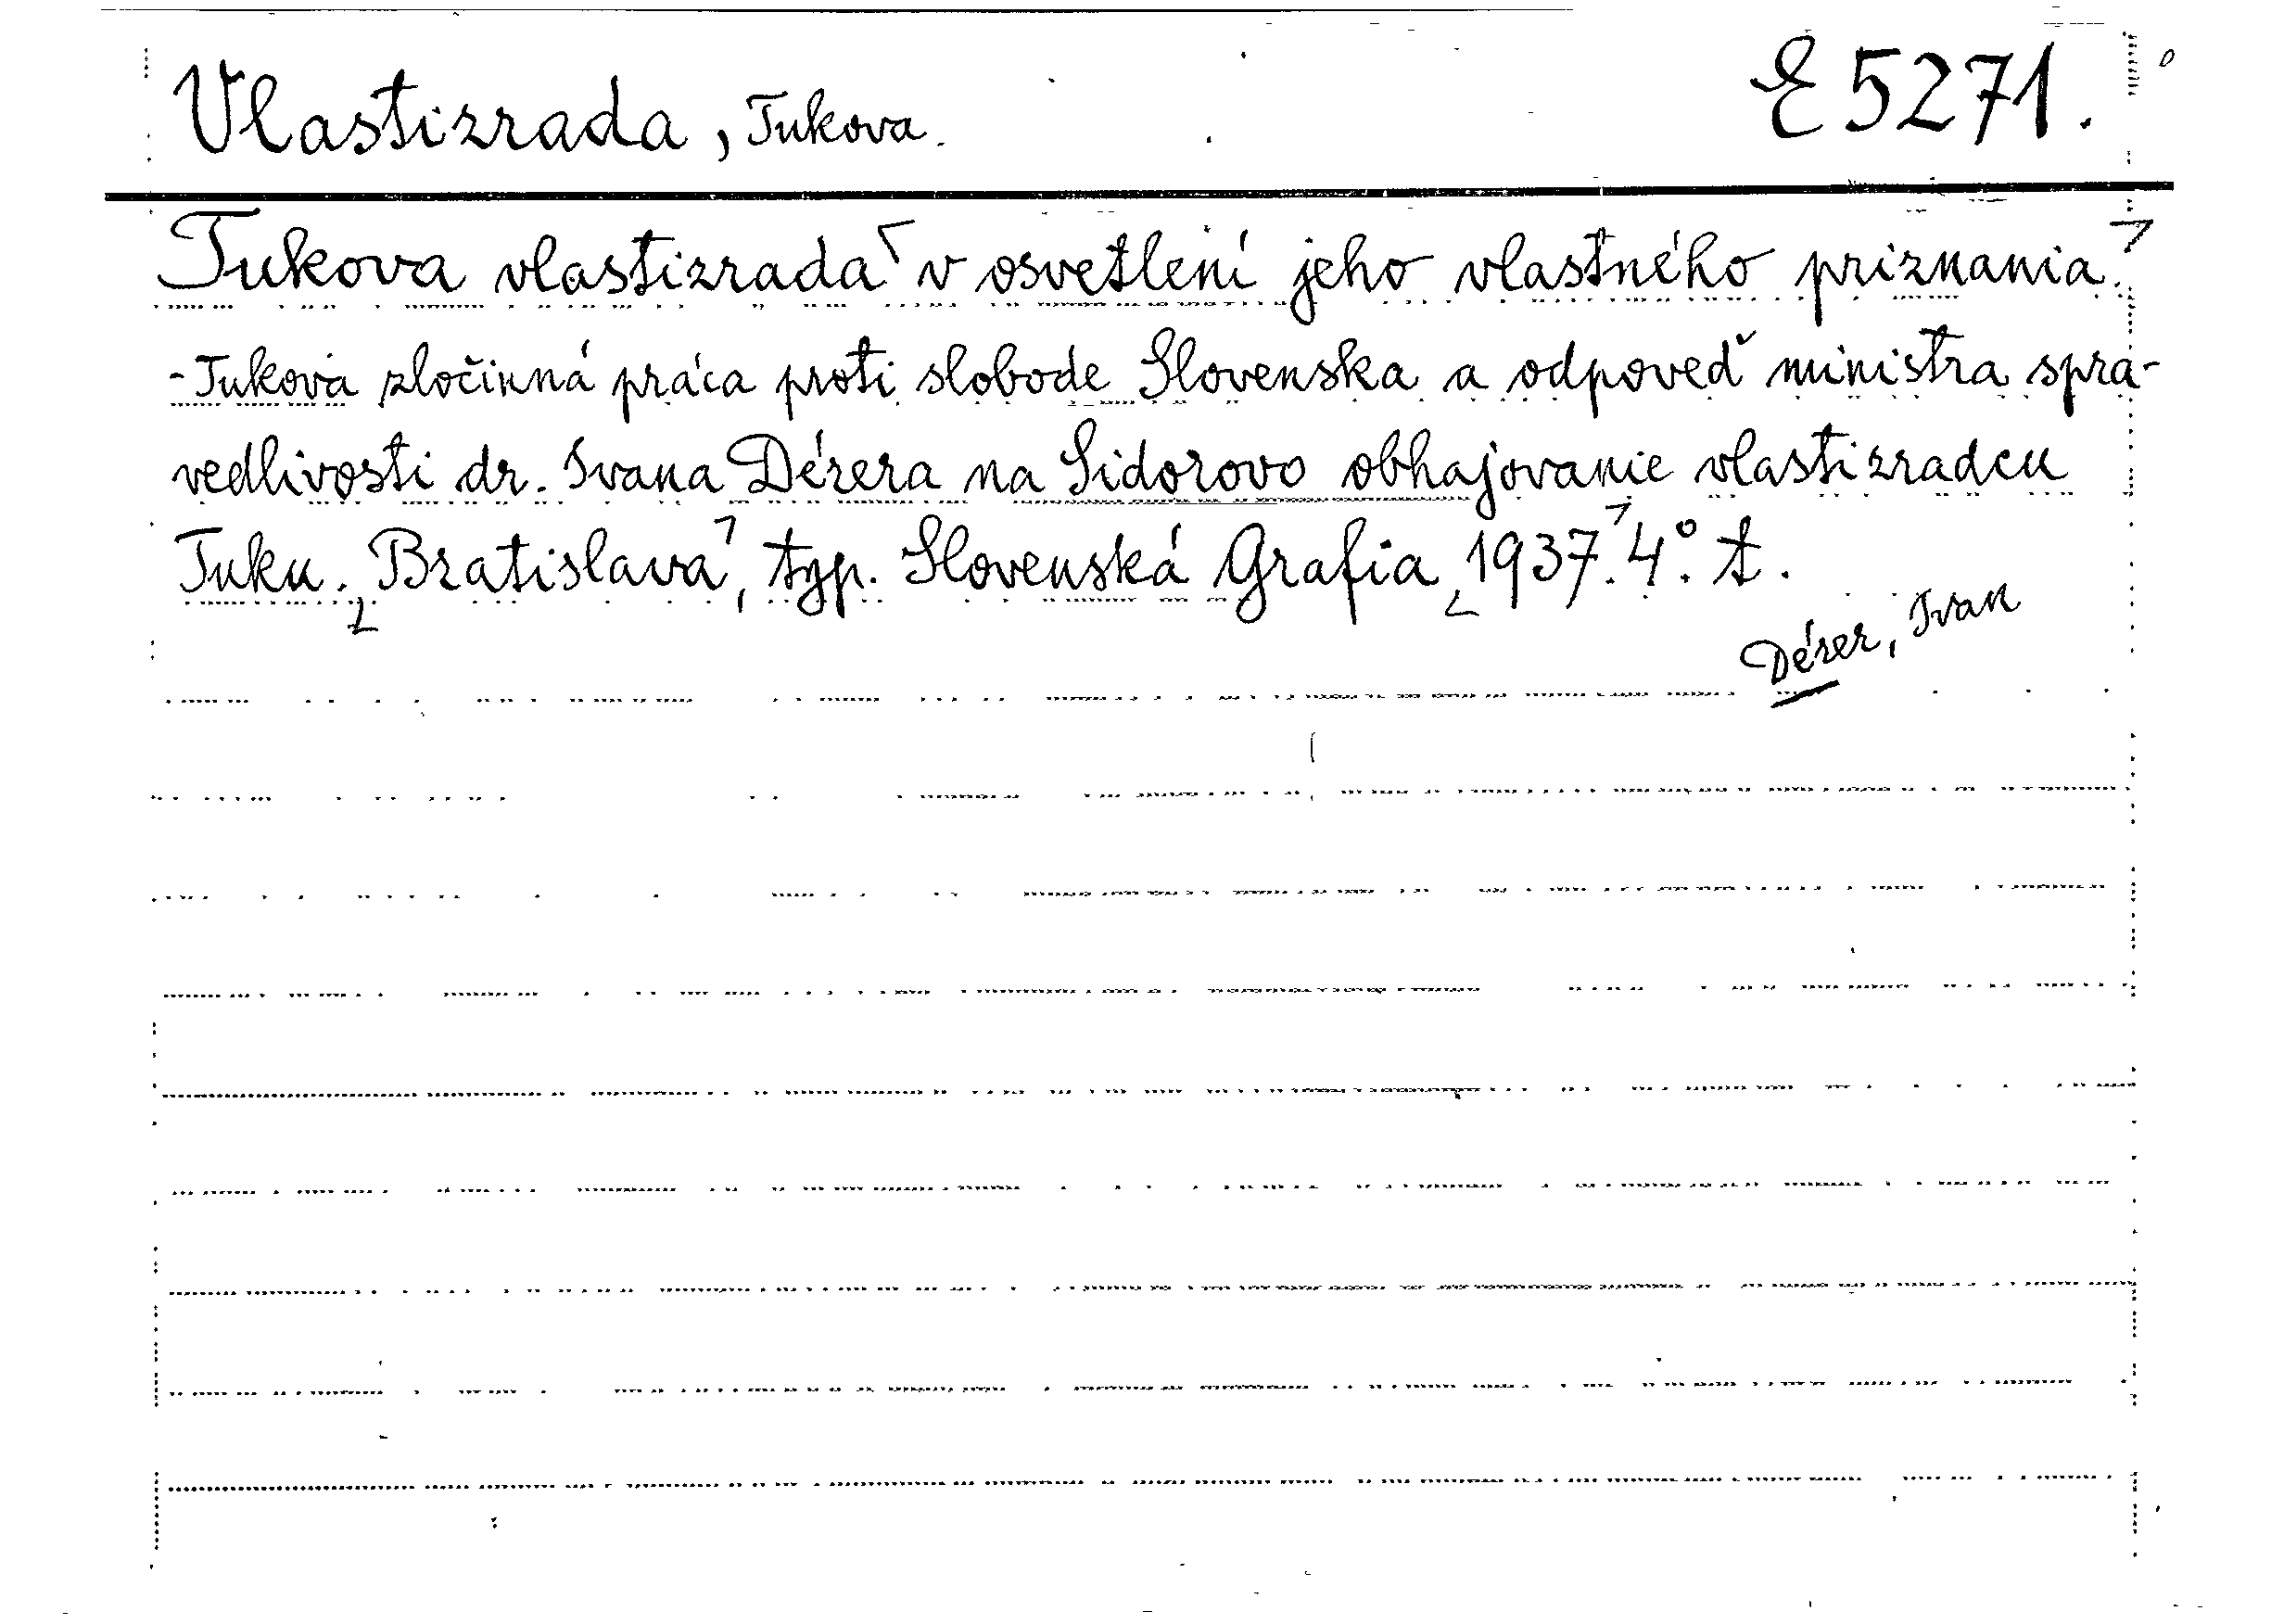 Vlastizrada, Tukova. E 5271.
Tukova vlastizrada v osvetlení jeho vlastného priznania.
-Tukova zločinná práca proti slobode Slovenska a odpoveď ministra spra-
vedlivosti dr. Ivana Dérera na Sidorovo obhajovanie vlastizradcu
Tuku. Bratislava, typ. Slovenská Grafia 1937. 4°. t.
Dérer, Ivan